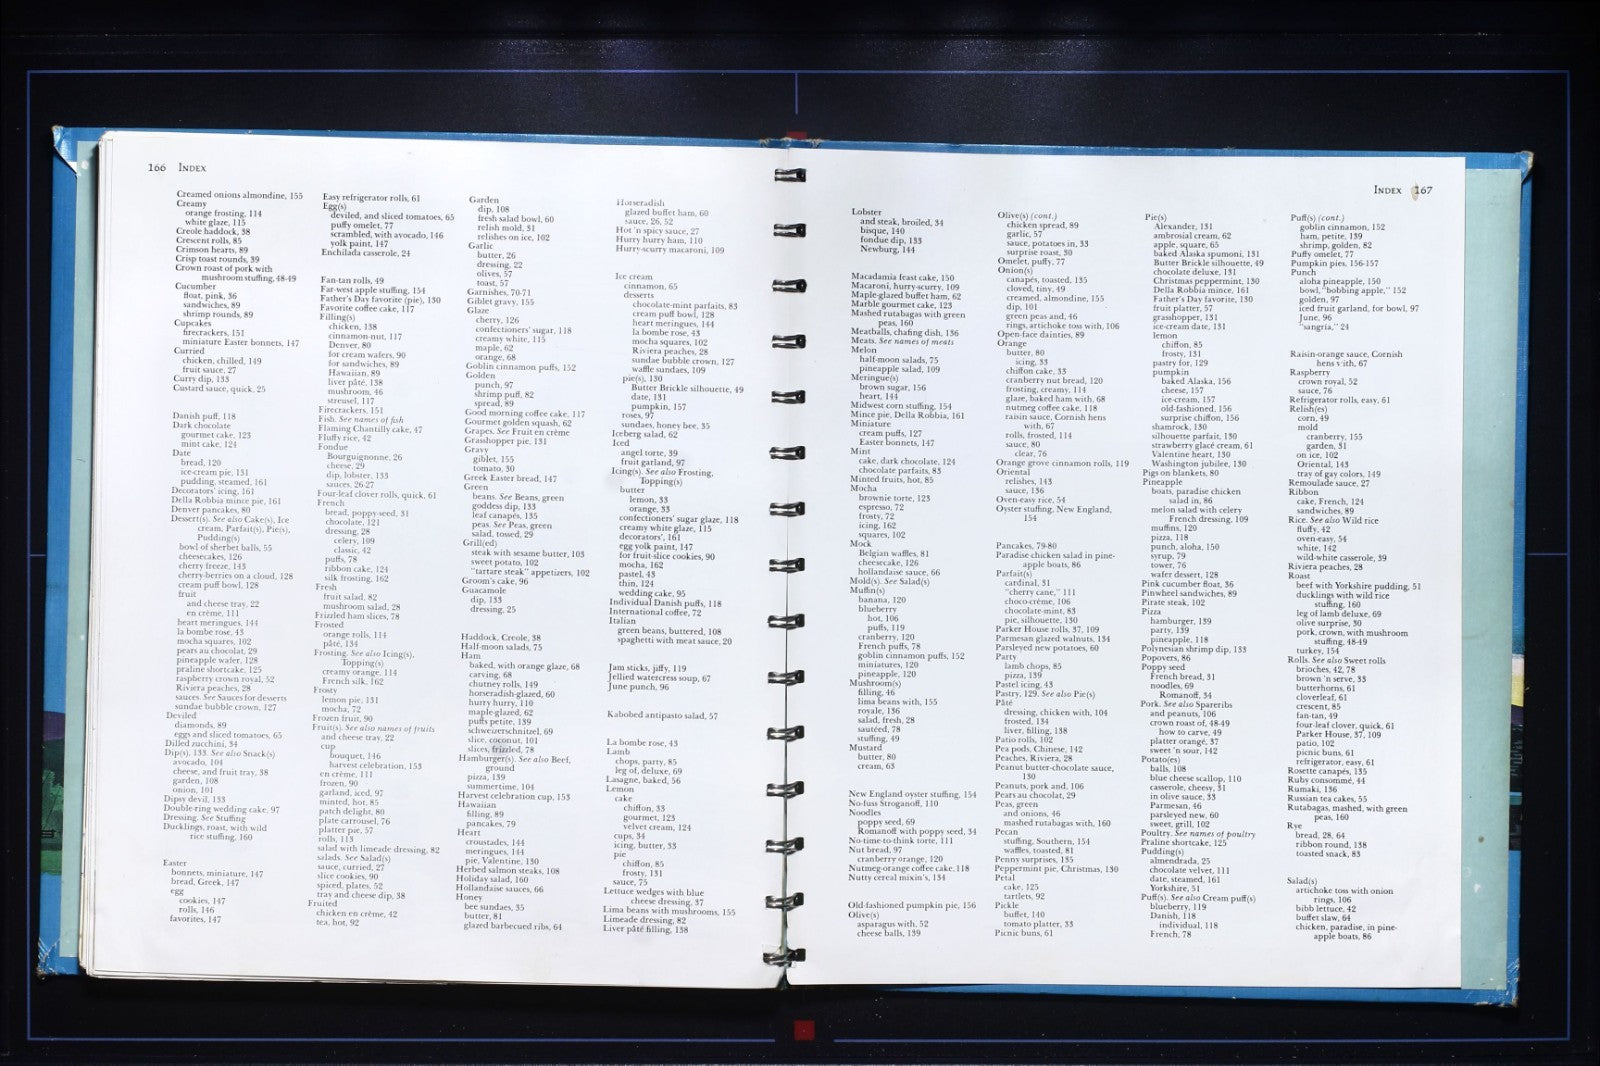 166 INDEX
Creamed onions almondine, 155
Creamy
orange frosting, 114
white glaze, 115
Creole haddock, 38
Crescent rolls, 85
Crimson hearts, 89
Crisp toast rounds, 39
Crown roast of pork with
mushroom stuffing, 48-49
Cucumber
float, pink, 36
sandwiches, 89
shrimp rounds, 89
Cupcakes
firecrackers, 151
miniature Easter bonnets, 147
Curried
chicken, chilled, 149
fruit sauce, 27
Curry dip, 133
Custard sauce, quick, 25
Danish puff, 118
Dark chocolate
gourmet cake, 123
mint cake, 124
Date
bread, 120
ice-cream pie, 131
pudding, steamed, 161
Decorators' icing, 161
Della Robbia mince pie, 161
Denver pancakes, 80
Dessert(s). See also Cake(s), Ice
cream, Parfait(s), Pie(s),
Pudding(s)
bowl of sherbet balls, 55
cheesecakes, 126
cherry freeze, 143
cherry-berries on a cloud, 128
cream puff bowl, 128
fruit
and cheese tray, 22
en crème, 111
heart meringues, 144
la bombe rose, 43
mocha squares, 102
pears au chocolat, 29
pineapple wafer, 128
praline shortcake, 125
raspberry crown royal, 52
Riviera peaches, 28
sauces. See Sauces for desserts
sundae bubble crown, 127
Deviled
diamonds, 89
eggs and sliced tomatoes, 65
Dilled zucchini, 34
Dip(s), 133. See also Snack(s)
avocado, 104
cheese, and fruit tray, 38
garden, 108
onion, 101
Dipsy devil, 133
Double-ring wedding cake, 97
Dressing. See Stuffing
Ducklings, roast, with wild
rice stuffing, 160
Easter
bonnets, miniature, 147
bread, Greek, 147
egg
cookies, 147
rolls, 146
favorites, 147
Easy refrigerator rolls, 61
Egg(s)
deviled, and sliced tomatoes, 65
puffy omelet, 77
scrambled, with avocado, 146
yolk paint, 147
Enchilada casserole, 24
Fan-tan rolls, 49
Far-west apple stuffing, 154
Father's Day favorite (pie), 130
Favorite coffee cake, 117
Filling(s)
chicken, 138
cinnamon-nut, 117
Denver, 80
for cream wafers, 90
for sandwiches, 89
Hawaiian, 89
liver pâté, 138
mushroom, 46
streusel, 117
Firecrackers, 151
Fish. See names of fish
Flaming Chantilly cake, 47
Fluffy rice, 42
Fondue
Bourguignonne, 26
cheese, 29
dip, lobster, 133
sauces, 26-27
Four-leaf clover rolls, quick, 61
French
bread, poppy-seed, 31
chocolate, 121
dressing, 28
celery, 109
classic, 42
puffs, 78
ribbon cake, 124
silk frosting, 162
Fresh
fruit salad, 82
mushroom salad, 28
Frizzled ham slices, 78
Frosted
orange rolls, 114
pâté, 134
Frosting. See also Icing(s),
Topping(s)
creamy orange, 114
French silk, 162
Frosty
lemon pie, 131
mocha, 72
Frozen fruit, 90
Fruit(s). See also names of fruits
and cheese tray, 22
cup
bouquet, 146
harvest celebration, 153
en crème, 111
frozen, 90
garland, iced, 97
minted, hot, 85
patch delight, 80
plate carrousel, 76
platter pie, 57
rolls, 113
salad with limeade dressing, 82
salads. See Salad(s)
sauce, curried, 27
slice cookies, 90
spiced, plates, 52
tray and cheese dip, 38
Fruited
chicken en crème, 42
tea, hot, 92
Garden
dip, 108
fresh salad bowl, 60
relish mold, 31
relishes on ice, 102
Garlic
butter, 26
dressing, 22
olives, 57
toast, 57
Garnishes, 70-71
Giblet gravy, 155
Glaze
cherry, 126
confectioners' sugar, 118
creamy white, 115
maple, 62
orange, 68
Goblin cinnamon puffs, 152
Golden
punch, 97
shrimp puff, 82
spread, 89
Good morning coffee cake, 117
Gourmet golden squash, 62
Grapes. See Fruit en crème
Grasshopper pie, 131
Gravy
giblet, 155
tomato, 30
Greek Easter bread, 147
Green
beans. See Beans, green
goddess dip, 133
leaf canapés, 135
peas. See Peas, green
salad, tossed, 29
Grill(ed)
steak with sesame butter, 103
sweet potato, 102
"tartare steak" appetizers, 102
Groom's cake, 96
Guacamole
dip, 133
dressing, 25
Haddock, Creole, 38
Half-moon salads, 75
Ham
baked, with orange glaze, 68
carving, 68
chutney rolls, 149
horseradish-glazed, 60
hurry hurry, 110
maple-glazed, 62
puffs petite, 139
schweizerschnitzel, 69
slice, coconut, 101
slices, frizzled, 78
Hamburger(s). See also Beef,
ground
pizza, 139
summertime, 104
Harvest celebration cup, 153
Hawaiian
filling, 89
pancakes, 79
Heart
croustades, 144
meringues, 144
pie, Valentine, 130
Herbed salmon steaks, 108
Holiday salad, 160
Hollandaise sauces, 66
Honey
bee sundaes, 35
butter, 81
glazed barbecued ribs, 64
Horseradish
glazed buffet ham, 60
sauce, 26, 52
Hot 'n spicy sauce, 27
Hurry hurry ham, 110
Hurry-scurry macaroni, 109
Ice cream
cinnamon, 65
desserts
chocolate-mint parfaits, 83
cream puff bowl, 128
heart meringues, 144
la bombe rose, 43
mocha squares, 102
Riviera peaches, 28
sundae bubble crown, 127
waffle sundaes, 109
pie(s), 130
Butter Brickle silhouette, 49
date, 131
pumpkin, 157
roses, 97
sundaes, honey bee, 35
Iceberg salad, 62
Iced
angel torte, 39
fruit garland, 97
Icing(s). See also Frosting,
Topping(s)
butter
lemon, 33
orange, 33
confectioners' sugar glaze, 118
creamy white glaze, 115
decorators', 161
egg yolk paint, 147
for fruit-slice cookies, 90
mocha, 162
pastel, 43
thin, 124
wedding cake, 95
Individual Danish puffs, 118
International coffee, 72
Italian
green beans, buttered, 108
spaghetti with meat sauce, 20
Jam sticks, jiffy, 119
Jellied watercress soup, 67
June punch, 96
Kabobed antipasto salad, 57
La bombe rose, 43
Lamb
chops, party, 85
leg of, deluxe, 69
Lasagne, baked, 56
Lemon
cake
chiffon, 33
gourmet, 123
velvet cream, 124
cups, 34
icing, butter, 33
pie
chiffon, 85
frosty, 131
sauce, 75
Lettuce wedges with blue
cheese dressing, 37
Lima beans with mushrooms, 155
Limeade dressing, 82
Liver pâté filling, 138
INDEX 167
Lobster
and steak, broiled, 34
bisque, 140
fondue dip, 133
Newburg, 144
Macadamia feast cake, 150
Macaroni, hurry-scurry, 109
Maple-glazed buffet ham, 62
Marble gourmet cake, 123
Mashed rutabagas with green
peas, 160
Meatballs, chafing dish, 136
Meats. See names of meats
Melon
half-moon salads, 75
pineapple salad, 109
Meringue(s)
brown sugar, 156
heart, 144
Midwest corn stuffing, 154
Mince pie, Della Robbia, 161
Miniature
cream puffs, 127
Easter bonnets, 147
Mint
cake, dark chocolate, 124
chocolate parfaits, 83
Minted fruits, hot, 85
Mocha
brownie torte, 123
espresso, 72
frosty, 72
icing, 162
squares, 102
Mock
Belgian waffles, 81
cheesecake, 126
hollandaise sauce, 66
Mold(s). See Salad(s)
Muffin(s)
banana, 120
blueberry
hot, 106
puffs, 119
cranberry, 120
French puffs, 78
goblin cinnamon puffs, 152
miniatures, 120
pineapple, 120
Mushroom(s)
filling, 46
lima beans with, 155
royale, 136
salad, fresh, 28
sautéed, 78
stuffing, 49
Mustard
butter, 80
cream, 63
New England oyster stuffing, 154
No-fuss Stroganoff, 110
Noodles
poppy seed, 69
Romanoff with poppy seed, 34
No-time-to-think torte, 111
Nut bread, 97
cranberry orange, 120
Nutmeg-orange coffee cake, 118
Nutty cereal mixin's, 134
Old-fashioned pumpkin pie, 156
Olive(s)
asparagus with, 52
cheese balls, 139
Olive(s) (cont.)
chicken spread, 89
garlic, 57
sauce, potatoes in, 33
surprise roast, 30
Omelet, puffy, 77
Onion(s)
canapés, toasted, 135
cloved, tiny, 49
creamed, almondine, 155
dip, 101
green peas and, 46
rings, artichoke toss with, 106
Open-face dainties, 89
Orange
butter, 80
icing, 33
chiffon cake, 33
cranberry nut bread, 120
frosting, creamy, 114
glaze, baked ham with, 68
nutmeg coffee cake, 118
raisin sauce, Cornish hens
with, 67
rolls, frosted, 114
sauce, 80
clear, 76
Orange grove cinnamon rolls, 119
Oriental
relishes, 143
sauce, 136
Oven-easy rice, 54
Oyster stuffing, New England,
154
Pancakes, 79-80
Paradise chicken salad in pine-
apple boats, 86
Parfait(s)
cardinal, 31
"cherry cane," 111
choco-crème, 106
chocolate-mint, 83
pie, silhouette, 130
Parker House rolls, 37, 109
Parmesan glazed walnuts, 134
Parsleyed new potatoes, 60
Party
lamb chops, 85
pizza, 139
Pastel icing, 43
Pastry, 129. See also Pie(s)
Pâté
dressing, chicken with, 104
frosted, 134
liver, filling, 138
Patio rolls, 102
Pea pods, Chinese, 142
Peaches, Riviera, 28
Peanut butter-chocolate sauce,
130
Peanuts, pork and, 106
Pears au chocolat, 29
Peas, green
and onions, 46
mashed rutabagas with, 160
Pecan
stuffing, Southern, 154
waffles, toasted, 81
Penny surprises, 135
Peppermint pie, Christmas, 130
Petal
cake, 125
tartlets, 92
Pickle
buffet, 140
tomato platter, 33
Picnic buns, 61
Pie(s)
Alexander, 131
ambrosial cream, 62
apple, square, 65
baked Alaska spumoni, 131
Butter Brickle silhouette, 49
chocolate deluxe, 131
Christmas peppermint, 130
Della Robbia mince, 161
Father's Day favorite, 130
fruit platter, 57
grasshopper, 131
ice-cream date, 131
lemon
chiffon, 85
frosty, 131
pastry for, 129
pumpkin
baked Alaska, 156
cheese, 157
ice-cream, 157
old-fashioned, 156
surprise chiffon, 156
shamrock, 130
silhouette parfait, 130
strawberry glacé cream, 61
Valentine heart, 130
Washington jubilee, 130
Pigs on blankets, 80
Pineapple
boats, paradise chicken
salad in, 86
melon salad with celery
French dressing, 109
muffins, 120
pizza, 118
punch, aloha, 150
syrup, 79
tower, 76
wafer dessert, 128
Pink cucumber float, 36
Pinwheel sandwiches, 89
Pirate steak, 102
Pizza
hamburger, 139
party, 139
pineapple, 118
Polynesian shrimp dip, 133
Popovers, 86
Poppy seed
French bread, 31
noodles, 69
Romanoff, 34
Pork. See also Spareribs
and peanuts, 106
crown roast of, 48-49
how to carve, 49
platter orangé, 37
sweet 'n sour, 142
Potato(es)
balls, 108
blue cheese scallop, 110
casserole, cheesy, 31
in olive sauce, 33
Parmesan, 46
parsleyed new, 60
sweet, grill, 102
Poultry. See names of poultry
Praline shortcake, 125
Pudding(s)
almendrada, 25
chocolate velvet, 111
date, steamed, 161
Yorkshire, 51
Puff(s). See also Cream puff(s)
blueberry, 119
Danish, 118
individual, 118
French, 78
Puff(s) (cont.)
goblin cinnamon, 152
ham, petite, 139
shrimp, golden, 82
Puffy omelet, 77
Pumpkin pies, 156-157
Punch
aloha pineapple, 150
bowl, "bobbing apple," 152
golden, 97
iced fruit garland, for bowl, 97
June, 96
"sangria," 24
Raisin-orange sauce, Cornish
hens with, 67
Raspberry
crown royal, 52
sauce, 76
Refrigerator rolls, easy, 61
Relish(es)
corn, 49
mold
cranberry, 155
garden, 31
on ice, 102
Oriental, 143
tray of gay colors, 149
Remoulade sauce, 27
Ribbon
cake, French, 124
sandwiches, 89
Rice. See also Wild rice
fluffy, 42
oven-easy, 54
white, 142
wild-white casserole, 39
Riviera peaches, 28
Roast
beef with Yorkshire pudding, 51
ducklings with wild rice
stuffing, 160
leg of lamb deluxe, 69
olive surprise, 30
pork, crown, with mushroom
stuffing, 48-49
turkey, 154
Rolls. See also Sweet rolls
brioches, 42, 78
brown 'n serve, 33
butterhorns, 61
cloverleaf, 61
crescent, 85
fan-tan, 49
four-leaf clover, quick, 61
Parker House, 37, 109
patio, 102
picnic buns, 61
refrigerator, easy, 61
Rosette canapés, 135
Ruby consommé, 44
Rumaki, 136
Russian tea cakes, 55
Rutabagas, mashed, with green
peas, 160
Rye
bread, 28, 64
ribbon round, 138
toasted snack, 83
Salad(s)
artichoke toss with onion
rings, 106
bibb lettuce, 42
buffet slaw, 64
chicken, paradise, in pine-
apple boats, 86